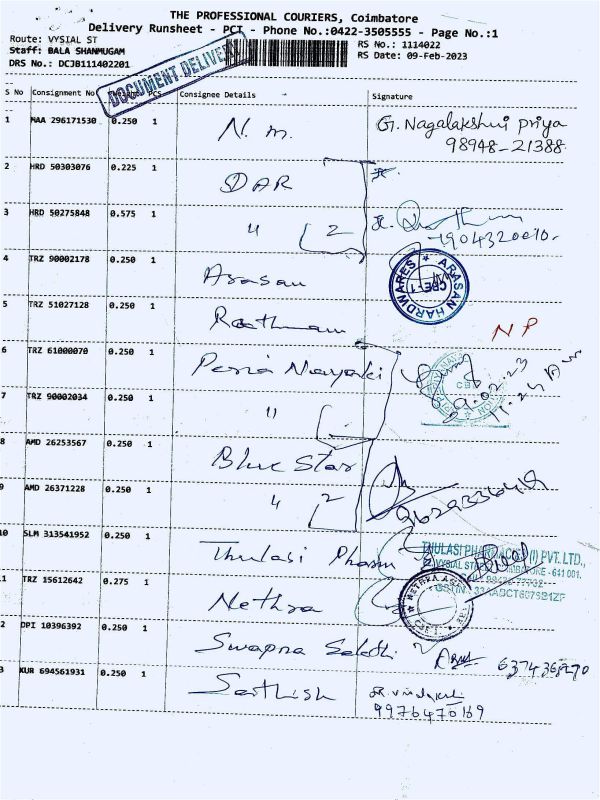 THE PROFESSIONAL COURIERS, Coimbatore
Delivery Runsheet - PCT - Phone No.:0422-3505555 - Page No.:1
Route: VYSIAL ST
RS No.: 1114022
Staff: BALA SHANMUGAM
RS Date: 09-Feb-2023
DRS No.: DCJB111402201
DOCUMENT DELIVERY
S No Consignment No PCS Consignee Details Signature
1 MAA 296171530 0.250 1 N. m. G. Nagalakshmi priya
98948-21388
2 HRD 50303076 0.225 1 DAR
3 HRD 50275848 0.575 1 " 2
4 TRZ 90002178 0.250 1 Arasan ARASAN HARDWARES CBE-1
5 TRZ 51027128 0.250 1 NP
6 TRZ 61000070 0.250 1 Peria Nayaki
7 TRZ 90002034 0.250 1 "
8 AMD 26253567 0.250 1 Blue Star
9 AMD 26371228 0.250 1 " 2
10 SLM 313541952 0.250 1 Thulasi Pharm THULASI PHARMACIES (I) PVT. LTD.,
VYSIAL ST
- 641 001.
11 TRZ 15612642 0.275 1 Nethra
2 DPI 10396392 0.250 1 Swapna
3 KUR 694561931 0.250 1 Sathish
9976470169